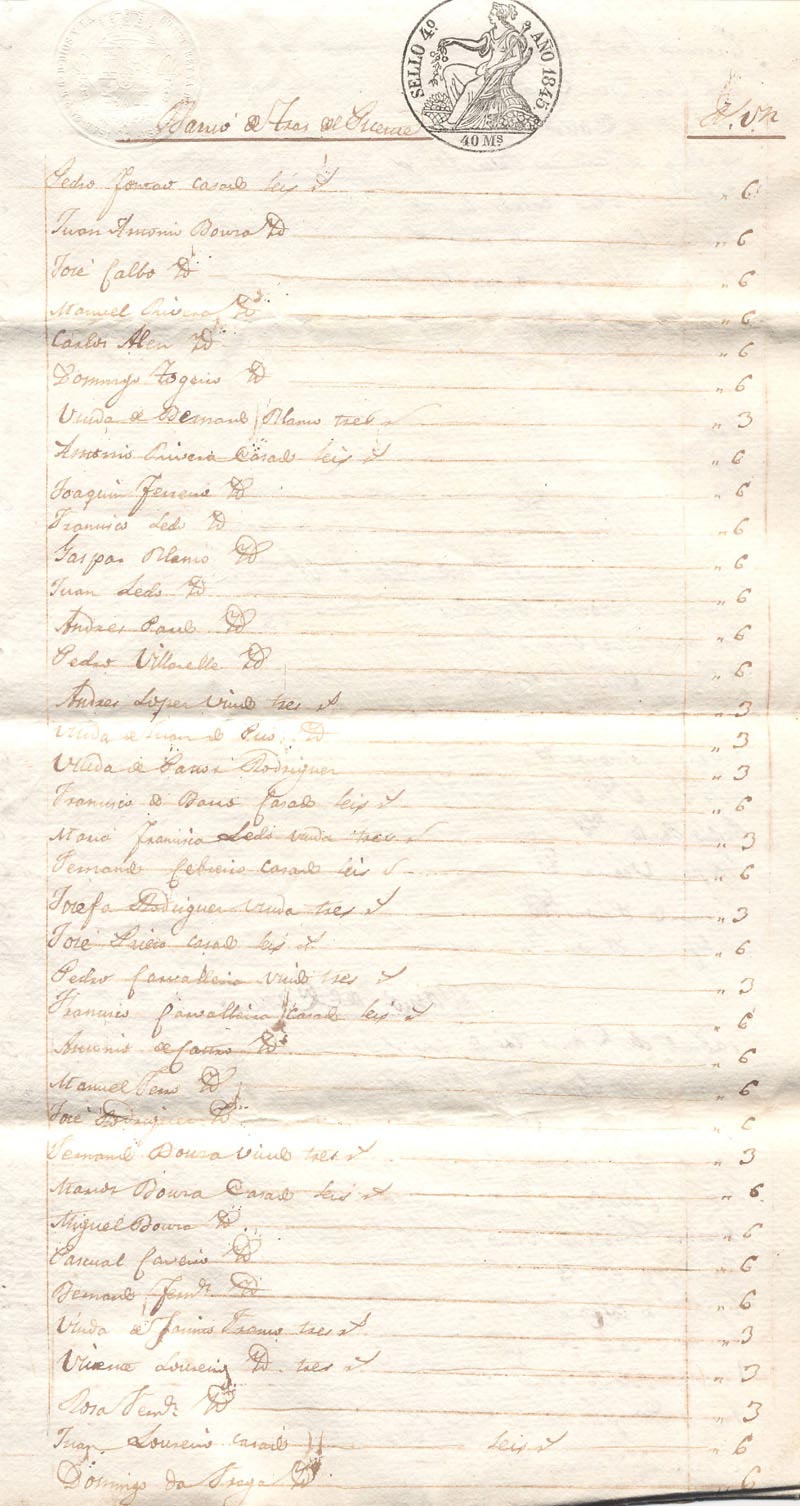 SELLO 4º AÑO 1845.
40 Mˢ
Barrio de tras de Puente Rˢ. vⁿ
Pedro casado seis rˢ „ 6
Juan Antonio Boura Yd „ 6
José Calbo Yd „ 6
Manuel Rivera Yd „ 6
Carlos Alen Yd „ 6
Domingo Yd „ 6
Viuda de Bernardo Blanco tres rˢ „ 3
Antonio Rivera Casado seis rˢ „ 6
Joaquin Ferreiro Yd „ 6
Francisco Ledo Yd „ 6
Gaspar Blanco Yd „ 6
Juan Ledo Yd „ 6
Andres Yd „ 6
Pedro Villarelle Yd „ 6
Andres Lopez viudo tres rˢ „ 3
Viuda de Juan de Yd „ 3
Viuda de Rodriguez „ 3
Francisco do Barro Casado seis rˢ „ 6
Maria Francisca Ledo viuda tres rˢ „ 3
Fernando Cebreiro casado seis rˢ „ 6
Josefa Rodriguez viuda tres rˢ „ 3
José casado seis rˢ „ 6
Pedro Carvalleira viudo tres rˢ „ 3
Francisco Carvalleira Casado seis rˢ „ 6
Antonio de Castro Yd „ 6
Manuel Yd „ 6
José Rodriguez Yd „ 6
Fernando Boura viudo tres rˢ „ 3
Marcos Boura Casado seis rˢ „ 6
Miguel Boura Yd „ 6
Pascual Yd „ 6
Bernardo Fernz. Yd „ 6
Viuda de tres rˢ „ 3
Vicente Loureiro Yd. tres rˢ „ 3
Rosa Fernz. Yd „ 3
Juan Loureiro casado seis rˢ „ 6
Domingo da Fraga Yd „ 6